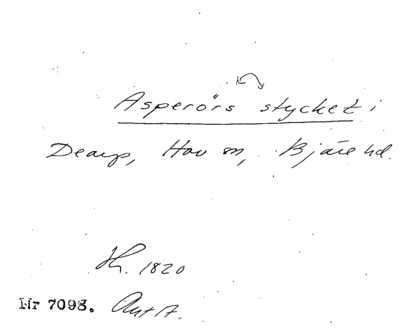 Asperörs stycket i
Dearp, Hov sn, Bjäre hd.
Hr. 1820
Nr 7098. Ant A.